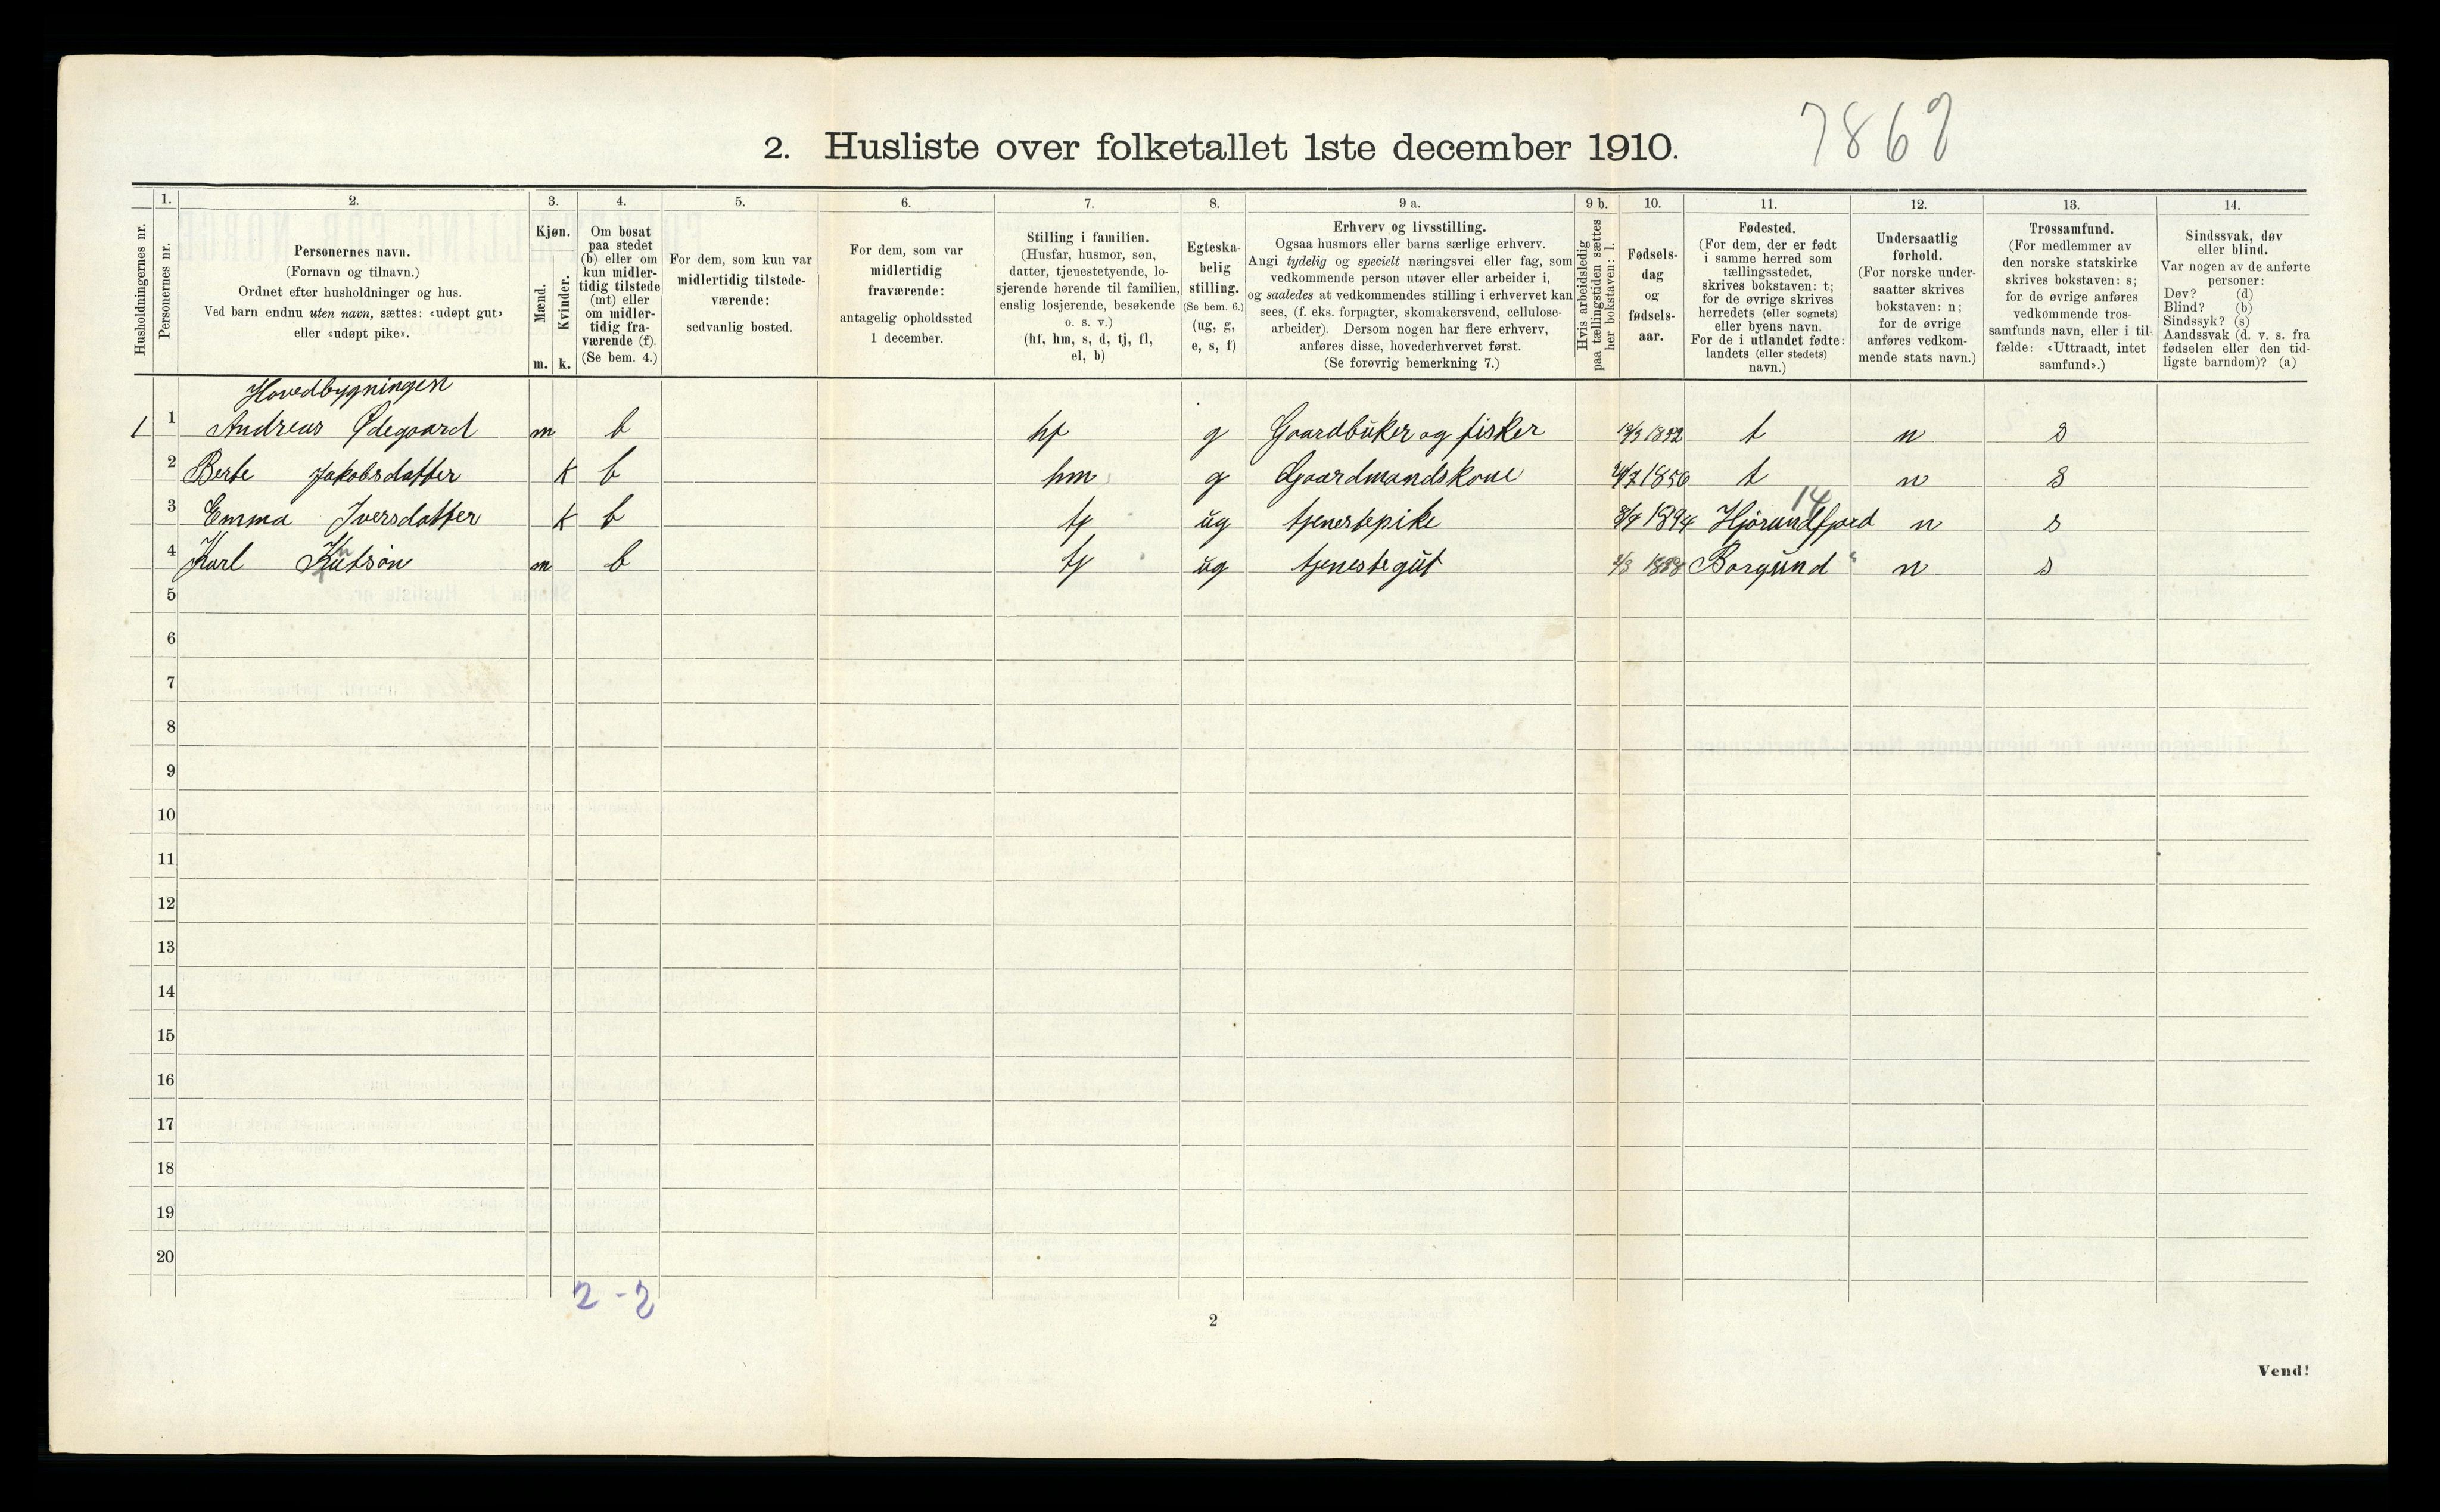 7869
2. Husliste over folketallet 1ste december 1910.
Husholdningernes nr.
1.
Personernes nr.
2.
Personernes navn.
(Fornavn og tilnavn.)
Ordnet efter husholdninger og hus.
Ved barn endnu uten navn, sættes: «udøpt gut»
eller «udøpt pike».
3.
Kjøn.
Mænd.
Kvinder.
m. k.
4.
Om bosat
paa stedet
(b) eller om
kun midler-
tidig tilstede
(mt) eller
om midler-
tidig fra-
værende (f).
(Se bem. 4.)
5.
For dem, som kun var
midlertidig tilstede-
værende:
sedvanlig bosted.
6.
For dem, som var
midlertidig
fraværende:
antagelig opholdssted
1 december.
7.
Stilling i familien.
(Husfar, husmor, søn,
datter, tjenestetyende, lo-
sjerende hørende til familien,
enslig losjerende, besøkende
o. s. v.)
(hf, hm, s, d, tj, fl,
el, b)
8.
Egteska-
belig
stilling.
(Se bem. 6.)
(ug, g,
e, s, f)
9 a.
Erhverv og livsstilling.
Ogsaa husmors eller barns særlige erhverv.
Angi tydelig og specielt næringsvei eller fag, som
vedkommende person utøver eller arbeider i,
og saaledes at vedkommendes stilling i erhvervet kan
sees, (f. eks. forpagter, skomakersvend, cellulose-
arbeider). Dersom nogen har flere erhverv,
anføres disse, hovederhvervet først.
(Se forøvrig bemerkning 7.)
9 b.
Hvis arbeidsledig
paa tællingstiden sættes
her bokstaven: l.
10.
Fødsels-
dag
og
fødsels-
aar.
11.
Fødested.
(For dem, der er født
i samme herred som
tællingsstedet,
skrives bokstaven: t;
for de øvrige skrives
herredets (eller sognets)
eller byens navn.
For de i utlandet fødte:
landets (eller stedets)
navn.)
12.
Undersaatlig
forhold.
(For norske under-
saatter skrives
bokstaven: n;
for de øvrige
anføres vedkom-
mende stats navn.)
13.
Trossamfund.
(For medlemmer av
den norske statskirke
skrives bokstaven: s;
for de øvrige anføres
vedkommende tros-
samfunds navn, eller i til-
fælde: «Uttraadt, intet
samfund».)
14.
Sindssvak, døv
eller blind.
Var nogen av de anførte
personer:
Døv? (d)
Blind? (b)
Sindssyk? (s)
Aandssvak (d. v. s. fra
fødselen eller den tid-
ligste barndom)? (a)
Hovedbygningen
1 1 Andreas Ødegaard m b hf g Gaardbuker og fisker t n s
2 Berte Jakobsdatter k b hm g Gaardmandskone 1856 t n s
14
3 Emma Iversdatter k b tj ug tjenestepike 1894 Hjørundfjord n s
4 Karl Knutsøn m b tj ug tjenestegut Borgund n s
5
6
7
8
9
10
11
12
13
14
15
16
17
18
19
20
2 - 2
2
Vend!